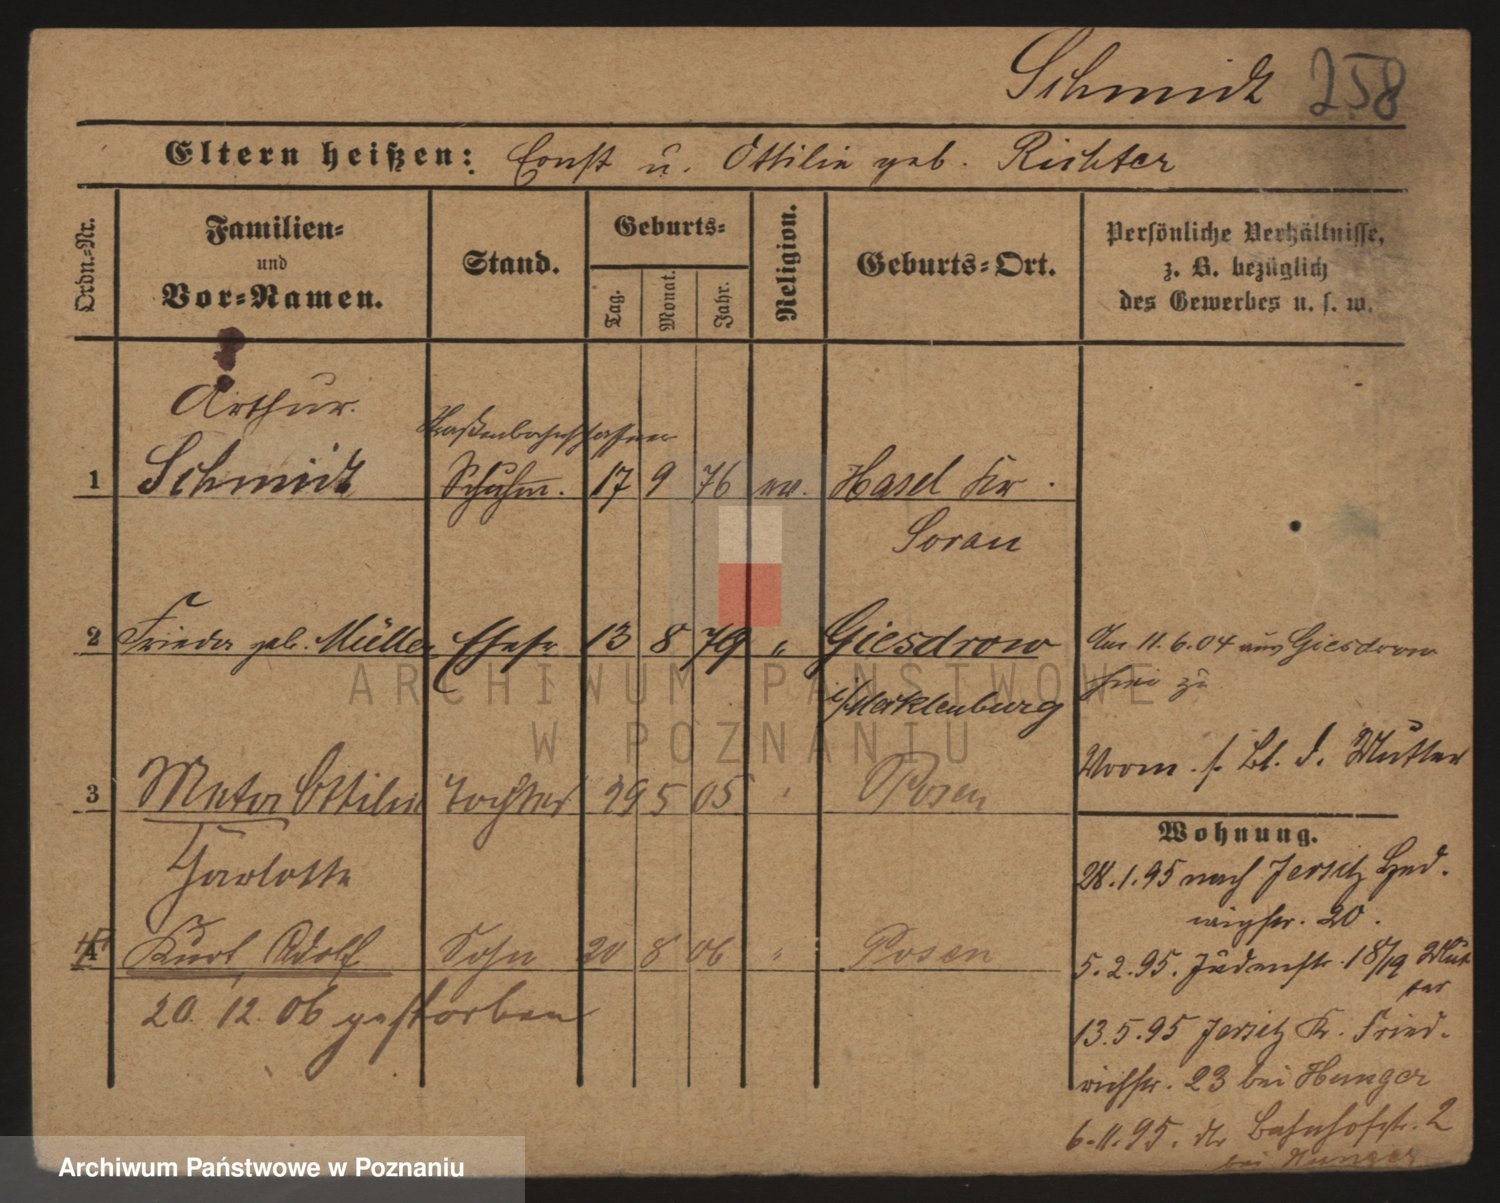 Schmidt 258
Eltern heißen: Ernst u. Ottilie geb. Richter
Ordn.-Nr.
Familien-
und
Vor-Namen.
Stand.
Geburts-
Tag.
Monat.
Jahr.
Religion.
Geburts-Ort.
Persönliche Verhältnisse,
z. B. bezüglich
des Gewerbes u. s. w.
Arthur.
Straßenbahnschaffner
1 Schmidt Schuhm. 17 9 76 ev. Hasel Kr.
Soran
2 Frieda geb. Müller Ehefr 13 8 79 " Giesdrow
i/Mecklenburg
11.6.04 aus Giesdrow
zu
Vorm. s. Bl. d. Mutter
3 Meta Ottilie Tochter 29 5 05 " Posen
Charlotte
4 Kurt Adolf Sohn 20 8 06 " Posen
20. 12. 06 gestorben
Wohnung.
28.1.95 nach Jersitz Hed-
wigstr. 20.
5.2.95. Judenstr. 18/19 Mut
ter
13.5.95 Jersitz Kr. Fried-
richstr. 23 bei Hunger
6.11.95. do Bahnhofstr. 2
bei Hunger
ARCHIWUM PAŃSTWOWE
W POZNANIU
Archiwum Państwowe w Poznaniu